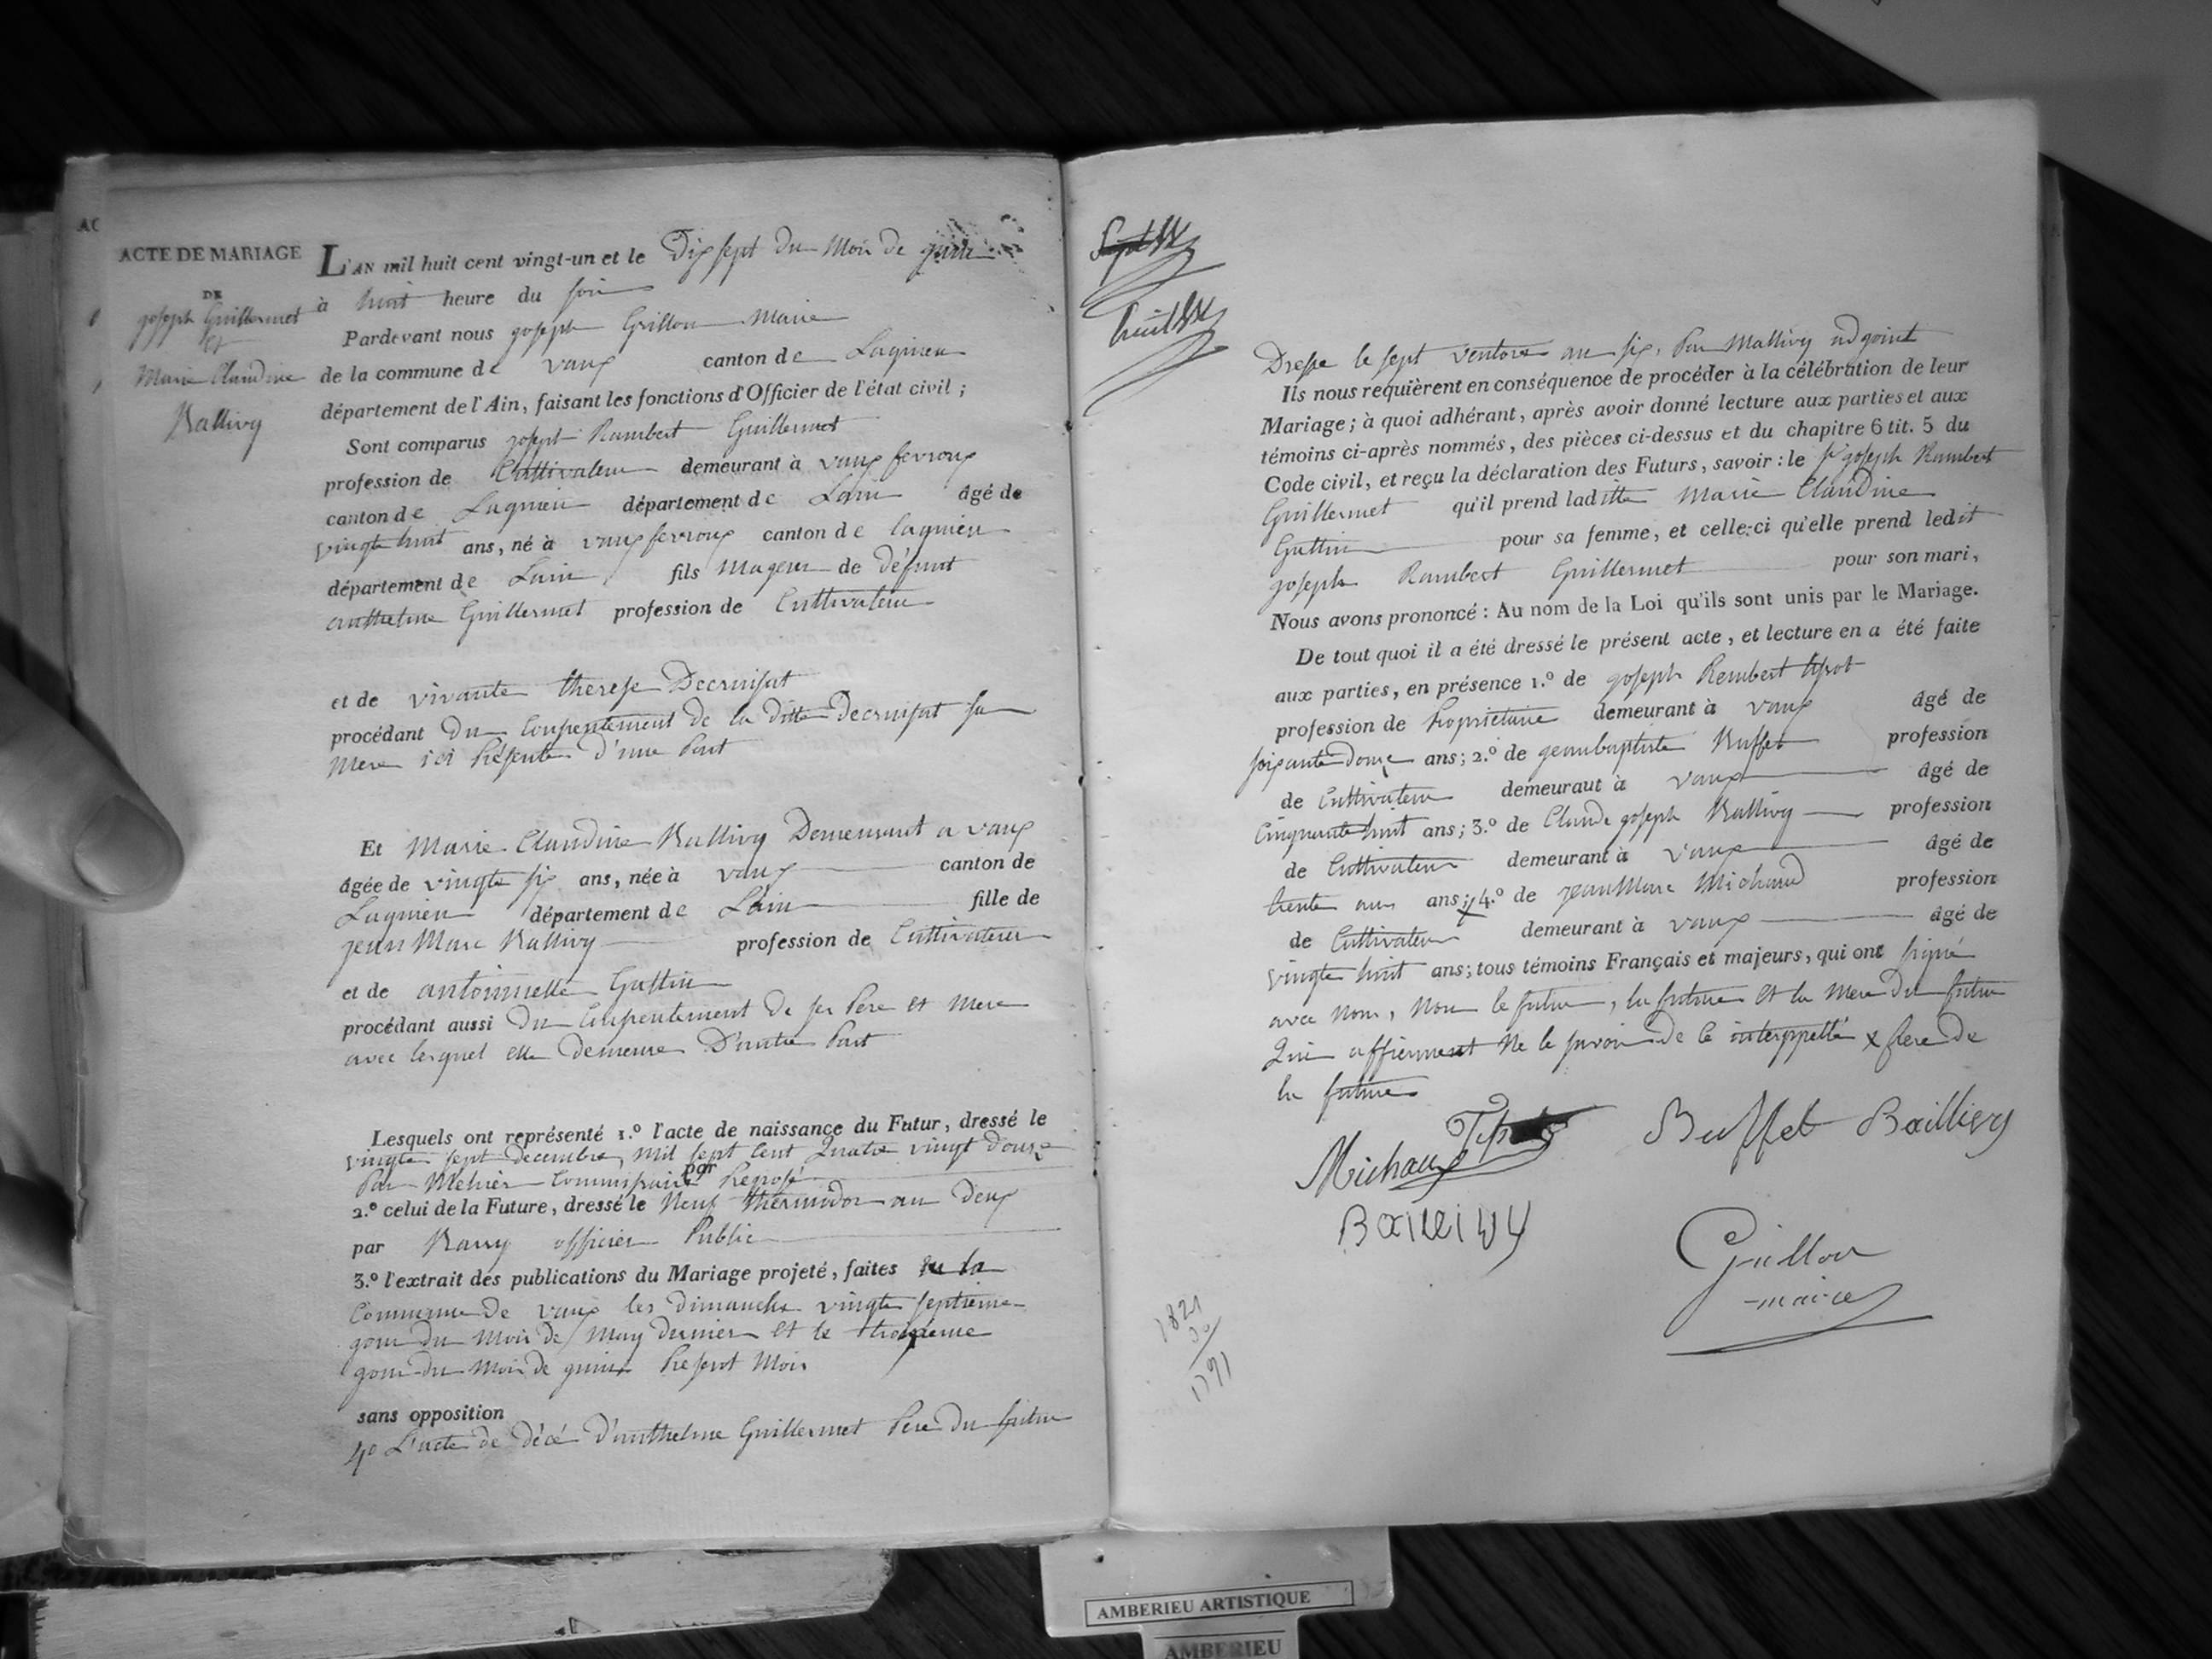 AC
ACTE DE MARIAGE
DE
joseph Guillermet
Et
Marie Claudine
Ballivy
L'AN mil huit cent vingt-un et le Dix sept du Mois de juin
à huit heure du soir
Pardevant nous joseph Grillon Maire
de la commune de vaux canton de Lagnieu
département de l'Ain, faisant les fonctions d'Officier de l'état civil ;
Sont comparus joseph Rambert Guillermet
profession de Cultivateur demeurant à vaux fevroux
canton de Lagnieu département de Lain âgé de
vingte huit ans, né à vaux fevroux canton de lagnieu
département de Lain fils majeur de défunt
anthelme Guillermet profession de Cultivateur
et de vivante therese Decruisat
procédant du Consentement de la ditte Decruisat sa
Mere ici Présente d'une Part
Et Marie Claudine Ballivy Demeurant a vaux
âgée de vingte six ans, née à vaux canton de
Lagnieu département de Lain fille de
jean Marc Ballivy profession de Cultivateur
et de antoinnette Guttin
procédant aussi du Consentement de ses Pere et Mere
avec lesquel elle demeure D'autre Part
Lesquels ont représenté 1.º l'acte de naissance du Futur, dressé le
vingte sept decembre, mil sept Cent Quatre vingt douze
par
Par Mehier Commissaire Preposé
2.º celui de la Future, dressé le Neuf thermidor an deux
par Barry officier Public
3.º l'extrait des publications du Mariage projeté, faites en la
Commune de vaux les dimanche vingte septieme
jour du mois de may dernier et le troisieme
jour du Mois de juin Présent Mois
sans opposition
4º L'acte de décé D'anthelme Guillermet Pere du futur
Dresse le sept ventose an six, Par Mallivy adjoint
Ils nous requièrent en conséquence de procéder à la célébration de leur
Mariage; à quoi adhérant, après avoir donné lecture aux parties et aux
témoins ci-après nommés, des pièces ci-dessus et du chapitre 6 tit. 5 du
Code civil, et reçu la déclaration des Futurs, savoir : le sr joseph Rambert
Guillermet qu'il prend laditte Marie Claudine
Guttin pour sa femme, et celle-ci qu'elle prend ledit
joseph Rambert Guillermet pour son mari,
Nous avons prononcé : Au nom de la Loi qu'ils sont unis par le Mariage.
De tout quoi il a été dressé le présent acte, et lecture en a été faite
aux parties, en présence 1.º de joseph Rembert
profession de Propriétaire demeurant à vaux âgé de
soixante douze ans; 2.º de jeanbaptiste Buffet profession
de Cultivateur demeurant à vaux âgé de
Cinquante huit ans; 3.º de Claude joseph Ballivy profession
de Cultivateur demeurant à vaux âgé de
trente ans; x 4.º de jean Marc Michaud profession
de Cultivateur demeurant à vaux âgé de
vingte huit ans; tous témoins Français et majeurs, qui ont signé
avec nous, Non le futur, la future et la mere du futur
Qui affierment Ne le savoir de ce interppellé x frere de
la future
Michaud
Buffet Baillivy
Baillivy
Guillon
maire
1821
30
1791
AMBERIEU ARTISTIQUE
AMBERIEU